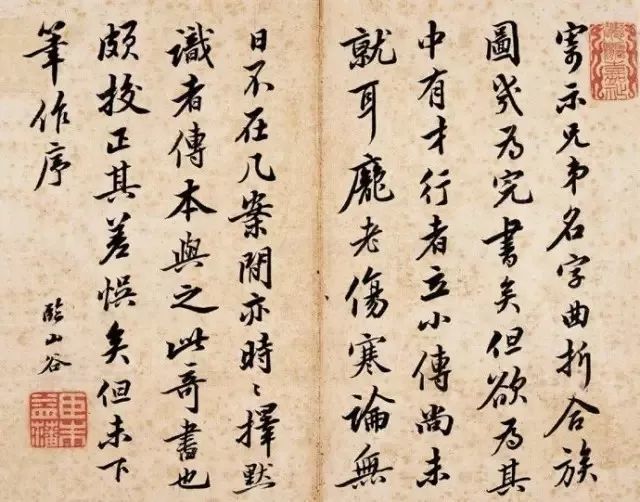 寄示兄弟名字曲折合族
圖幾為完書矣但欲為其
中有才行者立小傳尚未
就耳龐老傷寒論無
日不在几案間亦時〻擇默
識者傳本與之此奇書也
頗挍正其差悞矣但未下
筆作序
臨山谷